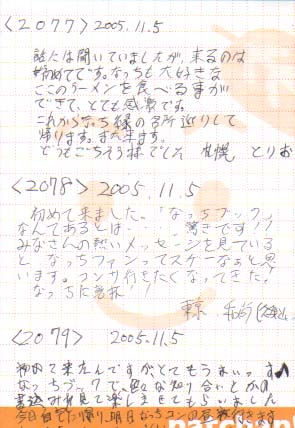 <2077> 2005.11.5
話には聞いていましたが、来るのは
初めてです。なっちも大好きな
ここのラーメンを食べる事が
できて、とても感激です。
これからなっち縁の名所巡りして
帰ります。また来ます。
どうもごちそう様でした 札幌 とりお
<2078> 2005.11.5
初めて来ました。「なっちブック」
なんてあるとは・・・・驚きです!!
みなさんの熱いメッセージを見ている
と なっちファンってスゲーなぁと思
います。コンサ行きたくなってきた!
なっちに急接!!
東京
<2079> 2005.11.5
初めて来たんですがとてもうまいっす♪
なっちブックで、色々な知り合いとかの
書込みも見て楽しませてもらいました
今日 明日 なっちコンの